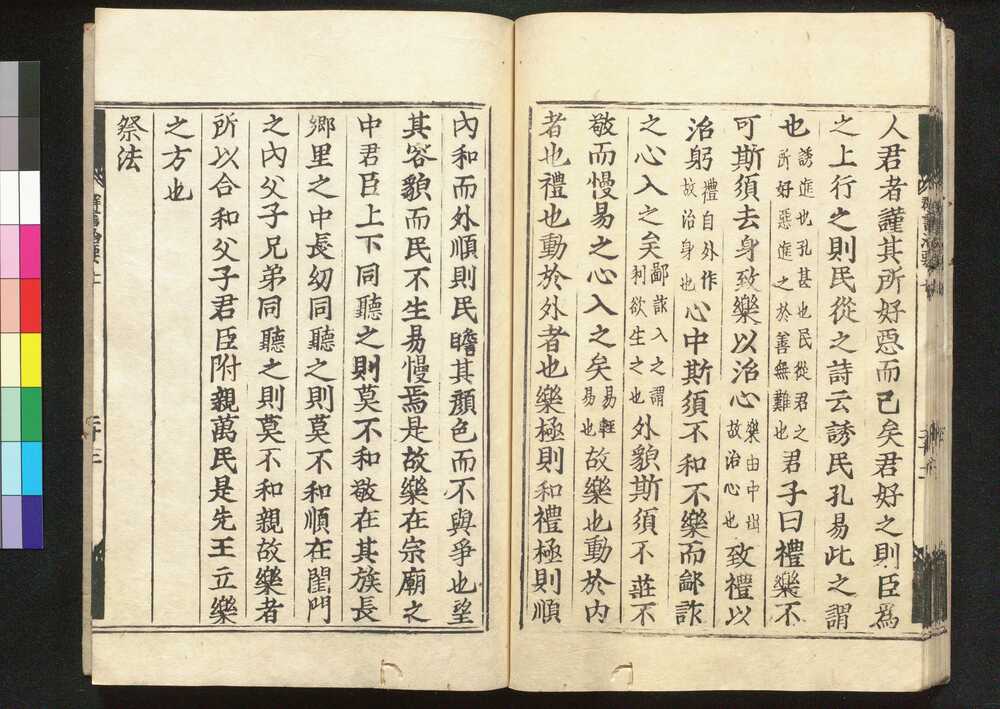 人君者謹其所好惡而已矣君好之則臣爲
之上行之則民從之詩云誘民孔易此之謂
也誘進也孔甚也民從君之所好惡進之於善無難也君子曰禮樂不
可斯須去身致樂以治心樂由中出故治心也致禮以
治躬禮自外作故治身也心中斯須不和不樂而鄙詐
之心入之矣鄙詐入之謂利欲生之也外貌斯須不莊不
敬而慢易之心入之矣易輕易也故樂也動於內
者也禮也動於外者也樂極則和禮極則順
內和而外順則民瞻其顏色而不與爭也望
其容貌而民不生易慢焉是故樂在宗廟之
中君臣上下同聽之則莫不和敬在其族長
鄉里之中長幼同聽之則莫不和順在閨門
之內父子兄弟同聽之則莫不和親故樂者
所以合和父子君臣附親萬民是先王立樂
之方也
祭法